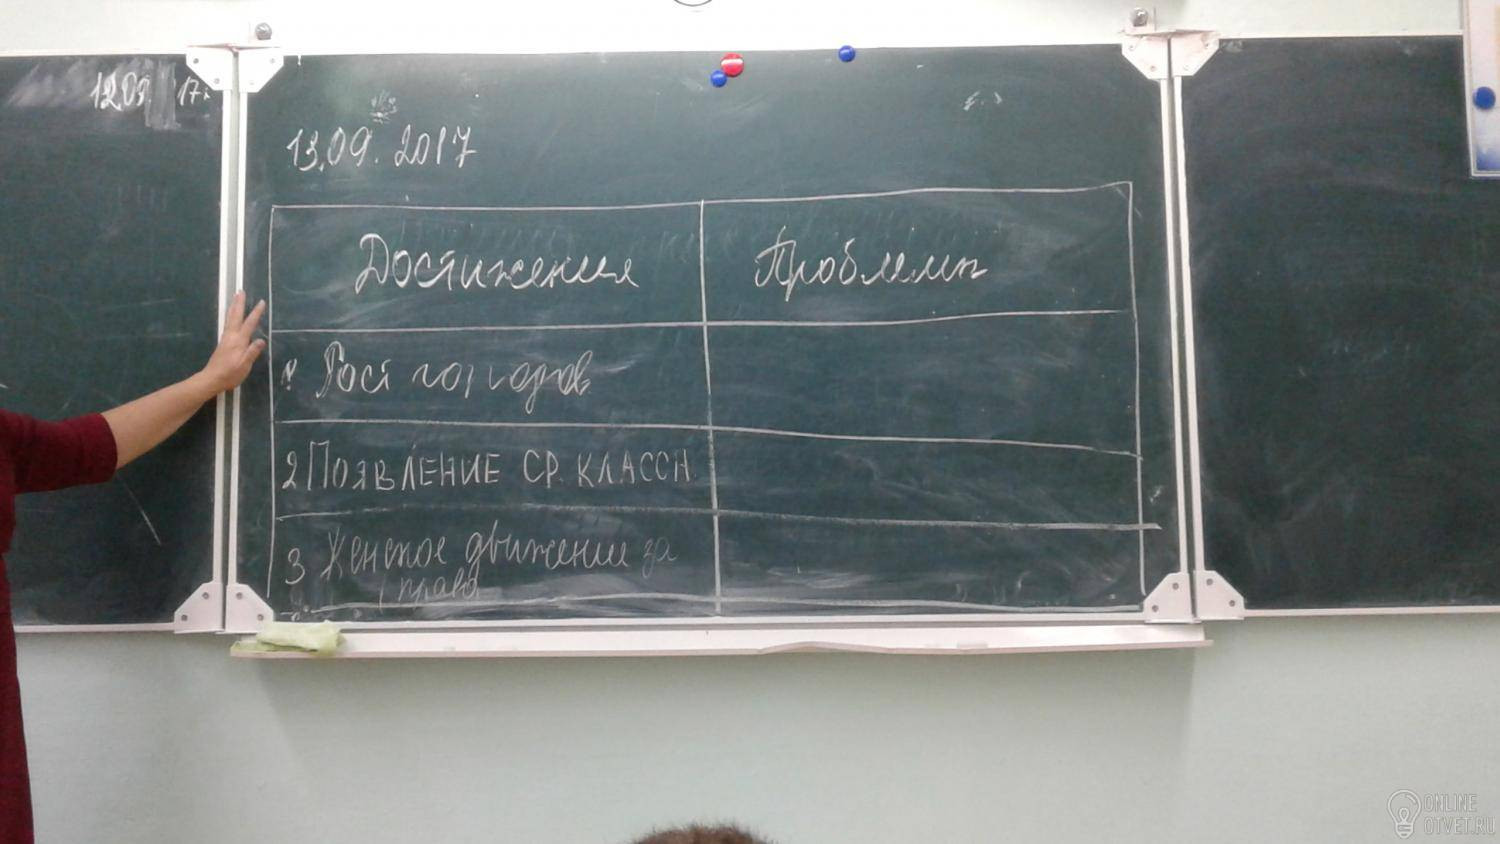 12.09. 17г
13.09. 2017
Достижения
Проблемы
1 Рост городов
2 ПОЯВЛЕНИЕ СР. КЛАССА
3 Женское движение за
права
ONLINE
OTVET.RU